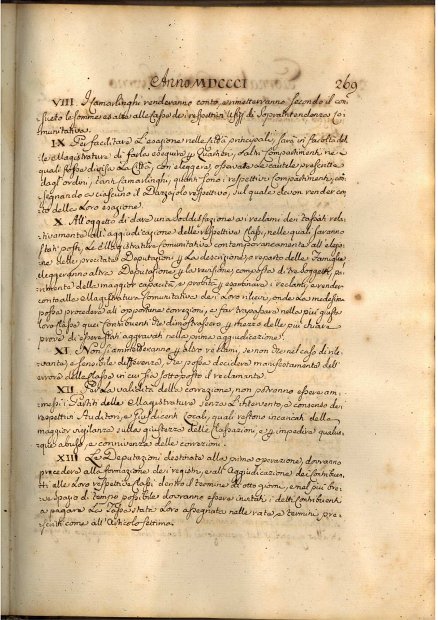 Anno MDCCCI 269
VIII. I Camarlinghi renderanno conto, e rimetteranno secondo il con-
sueto le somme esatte alle Casse dei respettivi Ufizj di Soprintendenza Co-
munitativa.
IX. Per facilitare l'esazione nelle Città principali, sarà in facoltà del-
le Magistrature di farla eseguire per Quartieri, o altri compartimenti nei
quali fosse divisa la Città, con eleggere, osservate le cautele prescritte
dagl'ordini, tanti Camarlinghi, quanti sono i respettivi compartimenti, con-
segnando a ciascuno il Dazzaiolo respettivo, sul quale devon render con-
to della loro esazione.
X. All'oggetto di dare una soddisfazione ai reclami dei tassati rela-
tivamente all'aggiudicazione delle respettive Classi, nelle quali saranno
stati posti, le Magistrature Comunitative contemporaneamente all'elezio-
ne delle precitate Deputazioni per la descrizione, e reparto delle Famiglie,
eleggeranno altra Deputazione per la revisione, composta di tre soggetti, pa-
rimente della maggior capacità, e probità per esaminare i reclami, e render
conto alle Magistrature Comunitative dei loro rilievi, onde le medesime
possa procedere alle opportune correzioni, e far trapassare nella più giusta
loro Classe quei Contribuenti che dimostrassero per mezzo delle più chiare
prove di essere stati aggravati nella prima aggiudicazione.
XI. Non si ammetteranno per altro reclami, se non che nel caso di rile-
vante, e sensibile differenza, che possa decidere manifestamente dell'
errore della Classe in cui sia sottoposto il reclamante.
XII. Per la validità della correzione, non potranno essere am-
messi i Partiti delle Magistrature senza l'intervento, e consenso dei
respettivi Auditori, e Giusdicenti Locali, quali restono incaricati della
maggior vigilanza sulla giustezza delle Classazioni, e per impedire qualun-
que abuso, e connivenza delle correzioni.
XIII. Le Deputazioni destinate alla prima operazione, dovranno
procedere alla formazione dei registri, e all'Aggiudicazione dei contribuen-
ti alle loro respettive Classi dentro il termine di otto giorni, e nel più bre-
ve spazio di tempo possibile dovranno essere citati i detti Contribuenti
a pagare la Tassa stata loro assegnata nelle rate, e termini pre-
scritti come all'Articolo settimo.